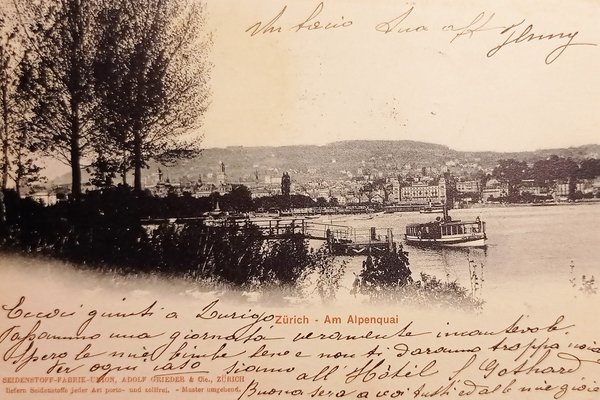 Un bacio Sua aff
Jenny
Zürich - Am Alpenquai
Eccoci giunti a Zurigo
Passammo una giornata veramente incantevole.
Spero le mie bimbe bene e non ti daranno troppa noia
Per ogni caso siamo all'Hôtel S. Gothard
Buona sera a voi tutti ed alle mie gioie
SEIDENSTOFF-FABRIK-UNION, ADOLF GRIEDER & Cie., ZÜRICH
liefern Seidenstoffe jeder Art porto- und zollfrei. - Muster umgehend.